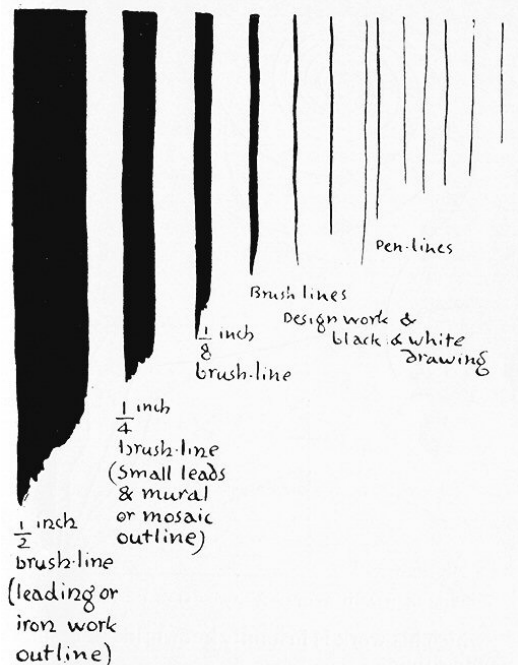 Pen-lines
Brush lines
Design work &
black & white
drawing
1/8 inch
brush-line
1/4 inch
brush-line
(Small leads
& mural
or mosaic
outline)
1/2 inch
brush-line
(leading or
iron work
outline)